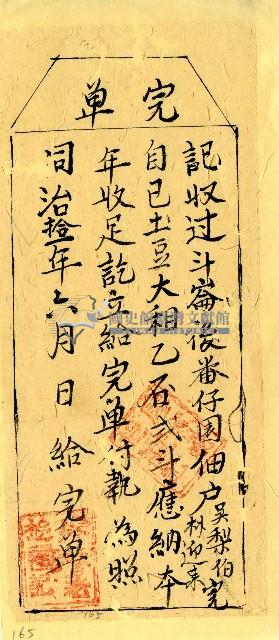 完单
記収过斗崙後番仔园佃户吴梨伯完
林迎来
自己土豆大租乙石弍斗應納本
年收足訖合給完单付執為照
同治拾一年六月 日給完单
國史館臺灣文獻館
165
165